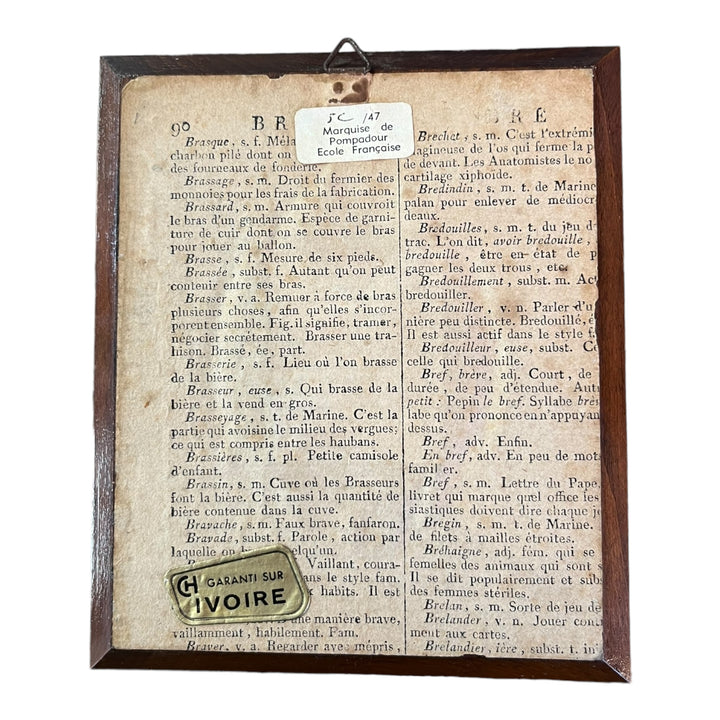 90 BR
5C /47
Marquise de
Pompadour
Ecole Française
Brasque, s. f. Méla
charbon pilé dont on
des fourneaux de fonderie.
Brassage, s. m. Droit du fermier des
monnoies pour les frais de la fabrication.
Brassard, s. m. Armure qui couvroit
le bras d'un gendarme. Espèce de garni-
ture de cuir dont on se couvre le bras
pour jouer au ballon.
Brasse, s. f. Mesure de six pieds.
Brassée, subst. f. Autant qu'on peut
contenir entre ses bras.
Brasser, v. a. Remuer à force de bras
plusieurs choses, afin qu'elles s'incor-
porent ensemble. Fig. il signifie, tramer,
négocier secrétement. Brasser une tra-
hison. Brassé, ée, part.
Brasserie, s. f. Lieu où l'on brasse
de la bière.
Brasseur, euse, s. Qui brasse de la
bière et la vend en gros.
Brasseyage, s. t. de Marine. C'est la
partie qui avoisine le milieu des vergues;
ce qui est compris entre les haubans.
Brassières, s. f. pl. Petite camisole
d'enfant.
Brassin, s. m. Cuve où les Brasseurs
font la bière. C'est aussi la quantité de
bière contenue dans la cuve.
Bravache, s. m. Faux brave, fanfaron.
Bravade, subst. f. Parole, action par
laquelle on qu'un.
Vaillant, coura-
ns le style fam.
x habits. Il est
ne manière brave,
vaillamment, habilement. Fam.
Braver, v. a. Regarder avec mépris,
CH GARANTI SUR
IVOIRE
RE
Brechet, s. m. C'est l'extrémi
agineuse de l'os qui ferme la p
de devant. Les Anatomistes le no
cartilage xiphoïde.
Bredindin, s. m. t. de Marine
palan pour enlever de médiocr
deaux.
Bredouilles, s. m. t. du jeu d
trac. L'on dit, avoir bredouille,
bredouille, être en état de p
gagner les deux trous, etc.
Bredouillement, subst. m. Ac
bredouiller.
Bredouiller, v. n. Parler d'u
nière peu distincte. Bredouillé, é
Il est aussi actif dans le style f
Bredouilleur, euse, subst. C
celle qui bredouille.
Bref, brève, adj. Court, de
durée, de peu d'étendue. Aut
petit : Pepin le bref. Syllabe brè
labe qu'on prononce en n'appuyan
dessus.
Bref, adv. Enfin.
En bref, adv. En peu de mots
familier.
Bref, s. m. Lettre du Pape.
livret qui marque quel office les
siastiques doivent dire chaque j
Bregin, s. m. t. de Marine.
de filets à mailles étroites.
Bréhaigne, adj. fém. qui se
femelles des animaux qui sont s
Il se dit populairement et sub
des femmes stériles.
Brelan, s. m. Sorte de jeu de
Brelander, v. n. Jouer cont
ment aux cartes.
Brelandier, ière, subst. t. in